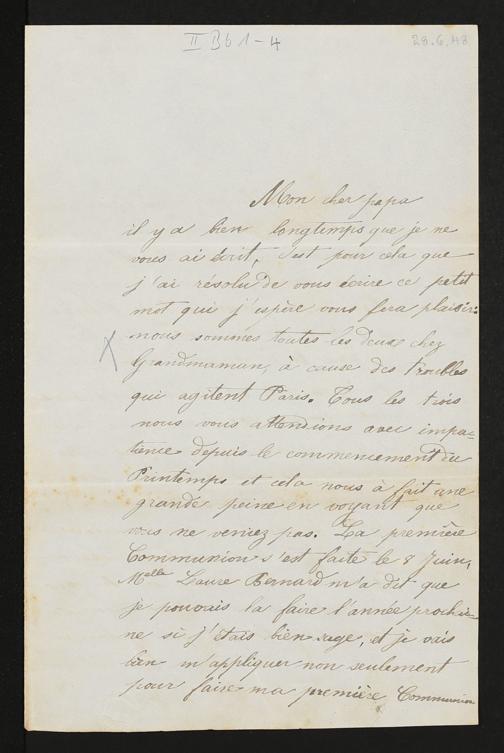 II Bb 1-4 28.6.48
Mon cher papa
il y a bien longtemps que je ne
vous ai écrit, c'est pour cela que
j'ai résolu de vous écrire ce petit
mot qui j'espère vous fera plaisir:
nous sommes toutes les deux chez
Grandmaman, à cause des troubles
qui agitent Paris. Tous les trois
nous vous attendions avec impa-
tience depuis le commencement du
Printemps et cela nous à fait une
grande peine en voyant que
vous ne veniez pas. La première
Communion s'est faite le 8 Juin,
Melle Laure Bernard m'a dit que
je pouvais la faire l'année prochai-
ne si j'étais bien sage, et je vais
bien m'appliquer non seulement
pour faire ma première Communion